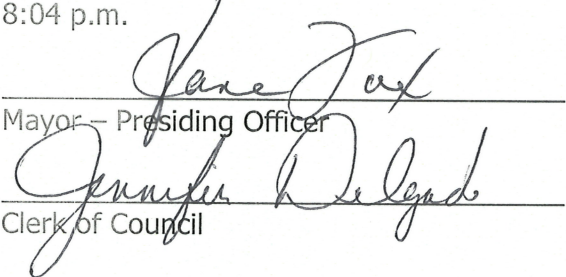 8:04 p.m.
Jane Fox
Mayor – Presiding Officer
Jennifer Delgado
Clerk of Council